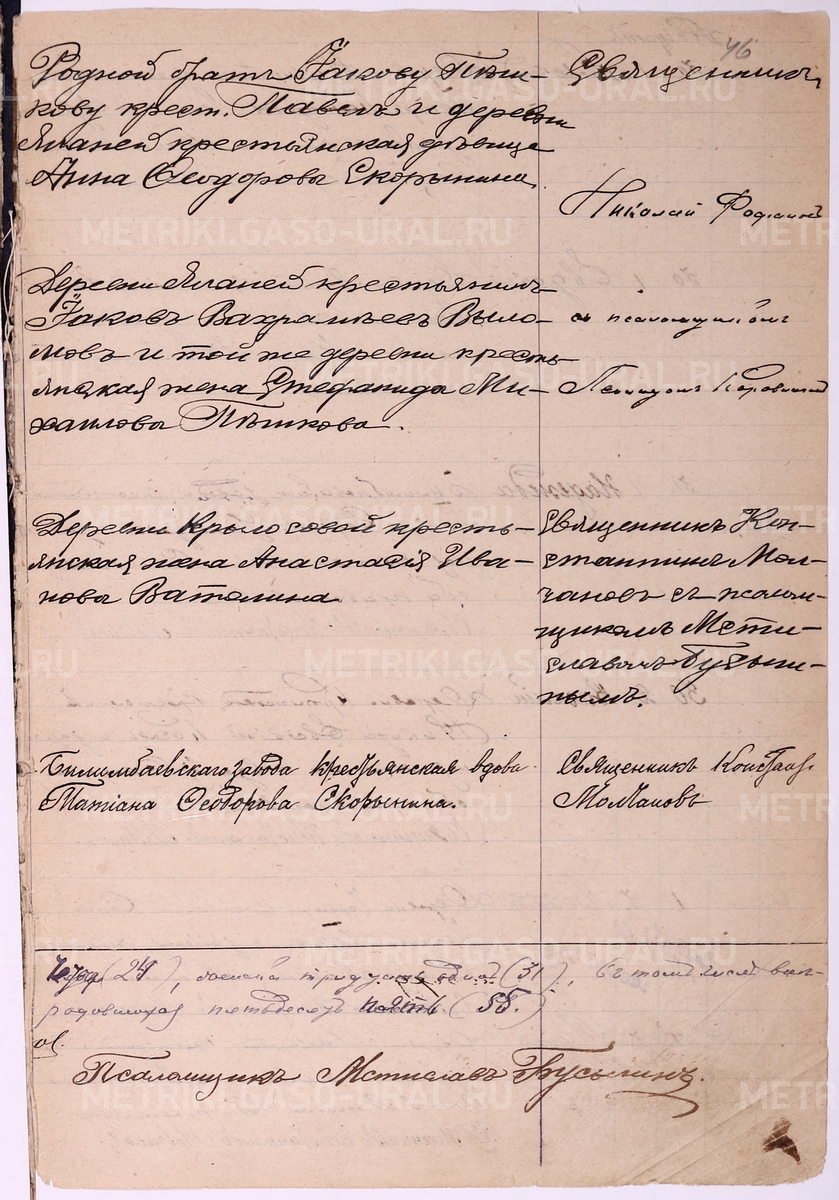 46
Родной братъ Іакову Пѣш-
кову крест. Павелъ и деревни
Яланей крестьянская дѣвица
Анна Ѳеодорова Скорынина
Священникъ
Николай
Деревни Яланей крестьянинъ
Іаковъ Вахрамѣевъ Выло-
мовъ и той же деревни кресть-
янская жена Стефанида Ми-
хаилова Пѣшкова.
съ псаломщикомъ
Деревни Крылосовой кресть-
янская жена Анастасія Ива-
нова Ватолина
Священникъ Кон-
стантинъ Мол-
чановъ съ псалом-
щикомъ Мсти-
славомъ Бусыги-
нымъ.
Билимбаевскаго завода крестьянская вдова
Татіана Ѳеодорова Скорынина.
Священникъ Констант.
Молчановъ
(24), тридцать одинъ (31), въ томъ числѣ
пятьдесятъ пять (55.)
Псаломщикъ Мстиславъ Бусыгинъ.
METRIKI.GASO-URAL.RU